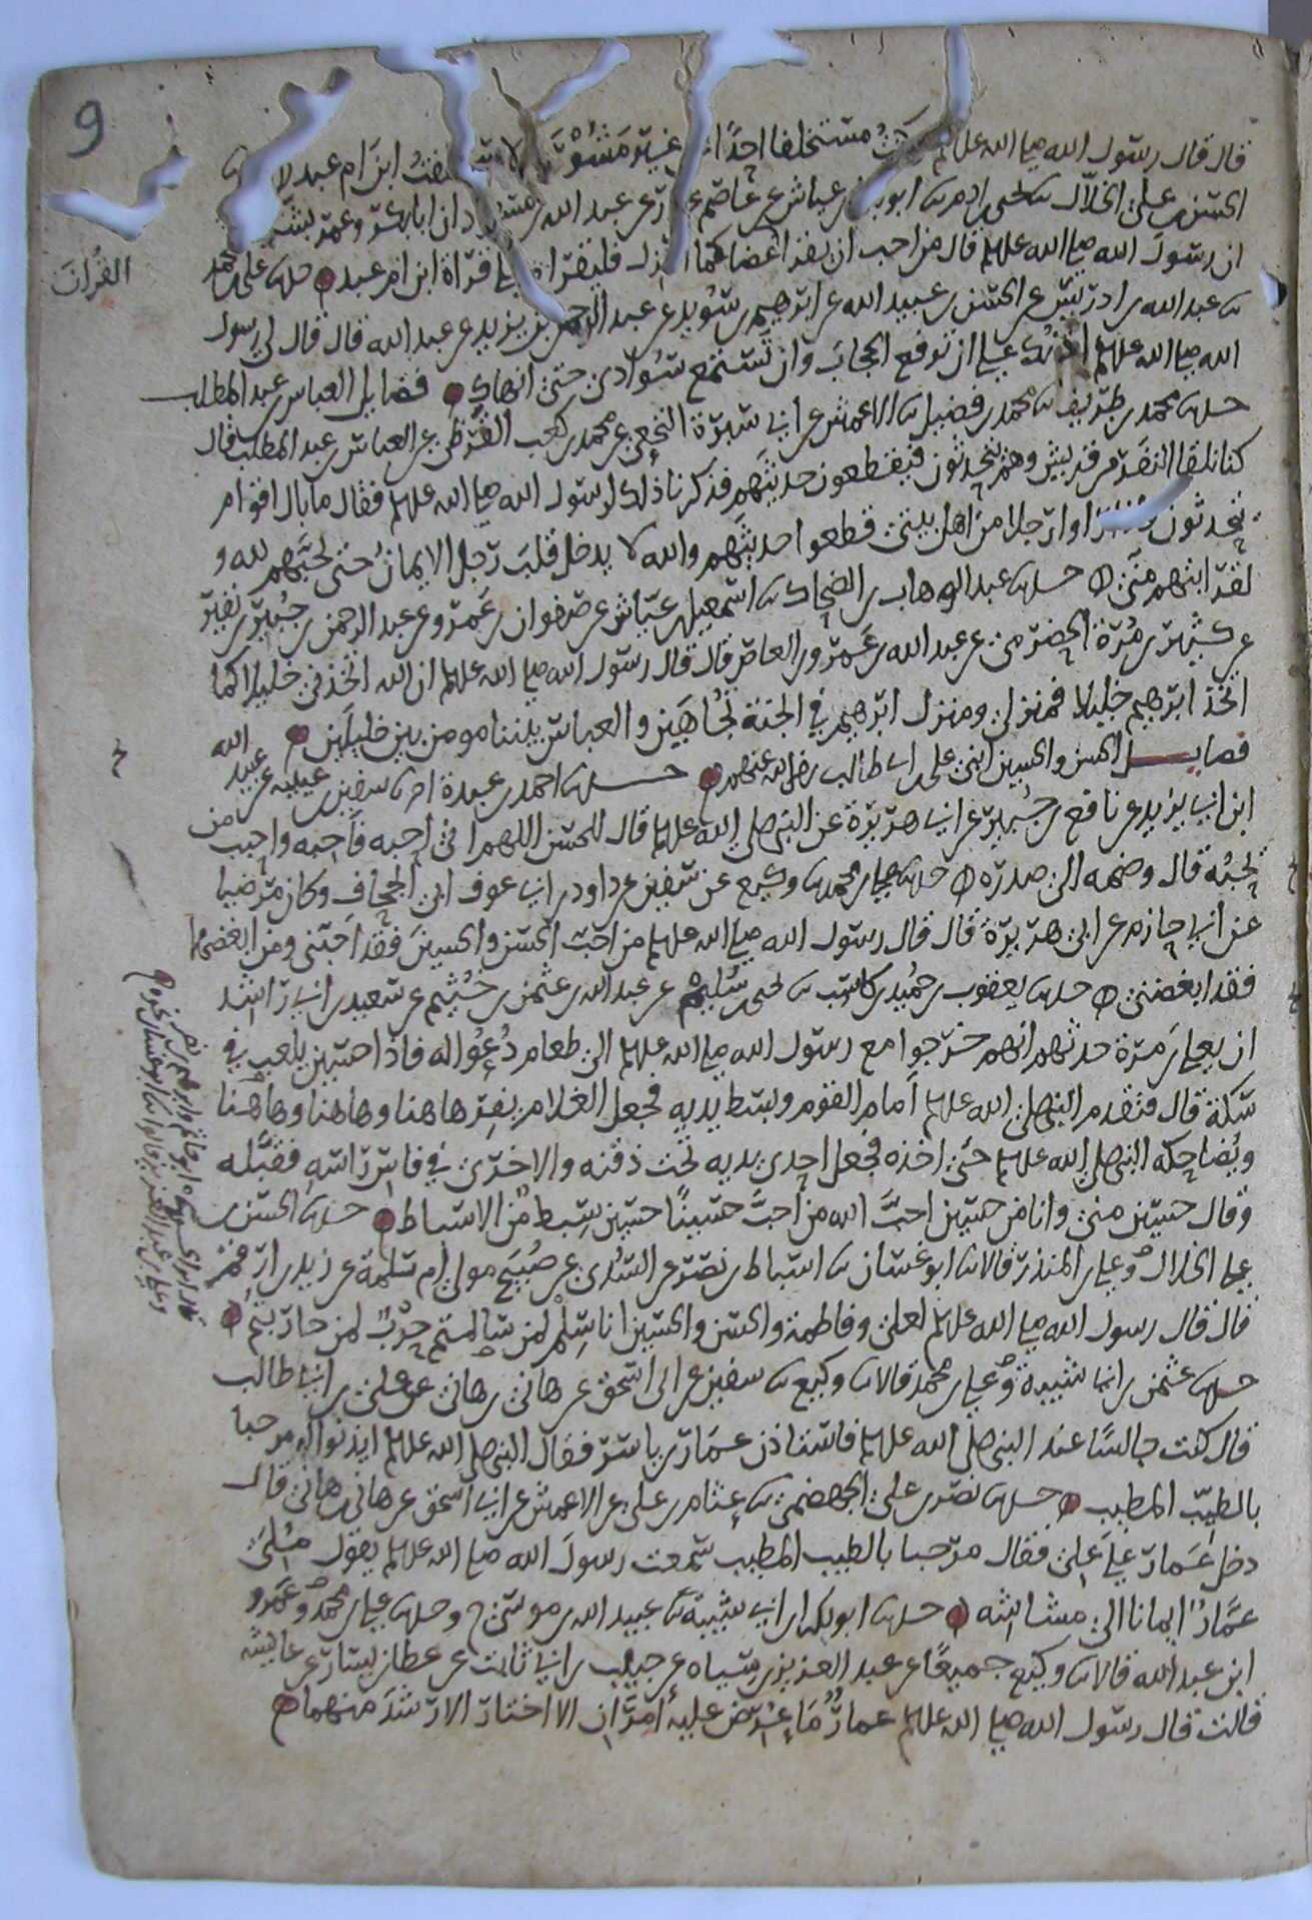 9
قال قال رسول الله صلى الله عليه لو كنت مستخلفا احدًا غير مشورة لا ستخلفت ابن ام عبد
الحسن بن علي الخلال يحيى بن ادم ابو بكر بن عياش عن عاصم عن زر عن عبد الله بن مسعود ان ابا بكر وعمر بشر
ان رسول الله صلى الله عليه قال من احب ان يقرا غضا كما انزل فليقراه على قراة ابن ام عبد حدثنا علي بن محمد
القران
عبد الله بن ادريس عن الحسن بن عبيد الله عن ابرهيم بن سويد عن عبد الرحمن بن يزيد عن عبد الله قال قال لي رسول
الله صلى الله عليه اذنك علي ان ترفع الحجاب وان تستمع سوادي حتى انهاك فضايل العباس بن عبد المطلب
حدثنا محمد بن طريف محمد بن فضيل الاعمش عن ابي سبرة النخعي عن محمد بن كعب القرظي عن العباس بن عبد المطلب قال
كنا نلقا النفر من قريش وهم يتحدثون فيقطعون حديثهم فذكرنا ذلك لرسول الله صلى الله عليه فقال ما بال اقوام
يتحدثون فاذا راوا رجلا من اهل بيتي قطعوا حديثهم والله لا يدخل قلب رجل الايمان حتى يحبهم لله و
لقرابتهم مني حدثنا عبد الوهاب بن الضحاك اسمعيل بن عياش عن صفوان بن عمرو عن عبد الرحمن بن جبير بن نفير
عن كثير بن مرة الحضرمي عن عبد الله بن عمرو بن العاص قال قال رسول الله صلى الله عليه ان الله اتخذني خليلا كما
اتخذ ابرهيم خليلا فمنزلي ومنزل ابرهيم في الجنة تجاهين والعباس بيننا مومن بين خليلين
فضايل الحسن والحسين ابني علي بن ابي طالب رضي الله عنهم حدثنا احمد بن عبدة سفين بن عيينه عن عبيد الله
ابن ابي يزيد عن نافع بن جبير عن ابي هريرة عن النبي صلى الله عليه قال للحسن اللهم اني احبه فاحبه واحب من
يحبه قال وضمه الى صدره حدثنا علي بن محمد وكيع عن سفين عن داود بن ابي عوف ابي الجحاف وكان مرضيا
عن ابي حازم عن ابي هريرة قال قال رسول الله صلى الله عليه من احب الحسن والحسين فقد احبني ومن ابغضهما
فقد ابغضني حدثنا يعقوب بن حميد بن كاسب يحيى بن سليم عن عبد الله بن عثمن بن خثيم عن سعيد بن ابي راشد
ان يعلى بن مرة حدثهم انهم خرجوا مع رسول الله صلى الله عليه الى طعام دعوا له فاذا حسين يلعب في
سكة قال فتقدم النبي صلى الله عليه امام القوم وبسط يديه فجعل الغلام يفر هاهنا وهاهنا وهاهنا
ويضاحكه النبي صلى الله عليه حتى اخذه فجعل احدى يديه تحت ذقنه والاخرى في فاس راسه فقبله
وقال حسين مني وانا من حسين احب الله من احب حسينًا حسين سبط من الاسباط حدثنا الحسن بن
علي الخلال وعلي بن المنذر قالا ابو غسان اسباط بن نصر عن السدي عن صبيح مولى ام سلمة عن زيد بن ارقم
قال قال رسول الله صلى الله عليه لعلي وفاطمة والحسن والحسين انا سلم لمن سالمتم حرب لمن حاربتم
حدثنا عثمن بن ابي شيبة وعلي بن محمد قالا وكيع سفين عن ابي اسحق عن هاني بن هاني عن علي بن ابي طالب
قال كنت جالسًا عند النبي صلى الله عليه فاستاذن عمار بن ياسر فقال النبي صلى الله عليه ايذنوا له مرحبا
بالطيب المطيب حدثنا نصر بن علي الجهضمي عثام بن علي عن الاعمش عن ابي اسحق عن هاني بن هاني قال
دخل عمار على علي فقال مرحبا بالطيب المطيب سمعت رسول الله صلى الله عليه يقول ملئ
عمار ايمانا الى مشاشه حدثنا ابو بكر بن ابي شيبة عبيد الله بن موسى ح وحدثنا علي بن محمد وعمرو
ابن عبد الله قالا وكيع جميعًا عن عبد العزيز بن سياه عن حبيب بن ابي ثابت عن عطا بن يسار عن عايشه
قالت قال رسول الله صلى الله عليه عمار ما عرض عليه امران الا اختار الارشد منهما